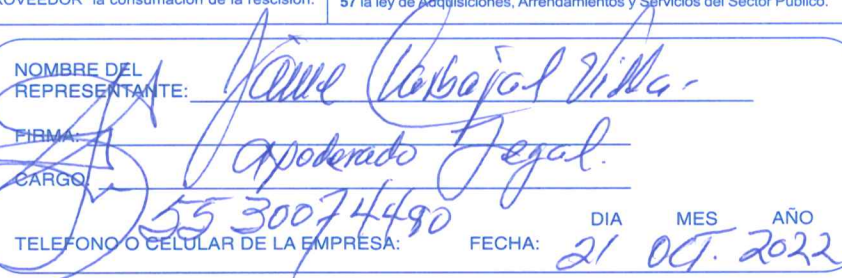 PROVEEDOR" la consumación de la rescisión.
57 la ley de Adquisiciones, Arrendamientos y Servicios del Sector Público.
NOMBRE DEL
REPRESENTANTE: Jaime Carbajal Villa.
FIRMA:
CARGO: Apoderado Legal.
55 30074490
TELEFONO O CELULAR DE LA EMPRESA: FECHA: DIA 21 MES OCT. AÑO 2022